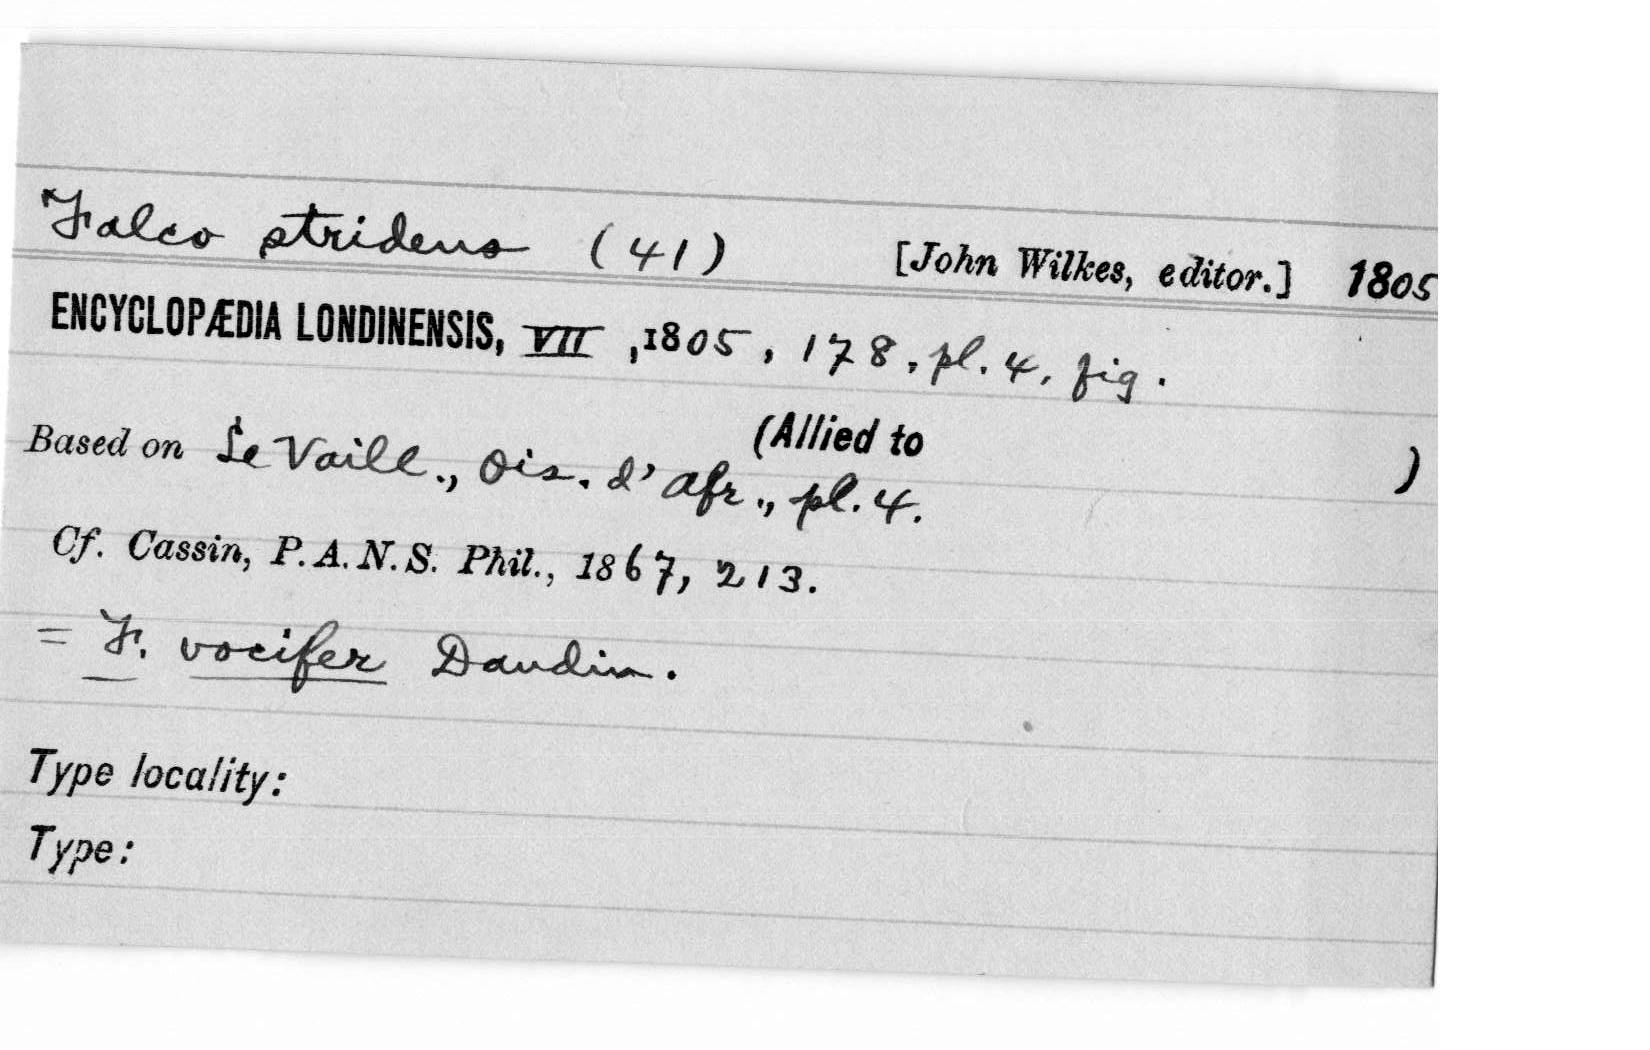 Falco stridens (41) [John Wilkes, editor.] 1805
ENCYCLOPÆDIA LONDINENSIS, VII, 1805, 178, pl. 4, fig.
(Allied to )
Based on Le Vaill., Ois. d'Afr., pl. 4.
Cf. Cassin, P. A. N. S. Phil., 1867, 213.
= F. vocifer Daudin.
Type locality:
Type: